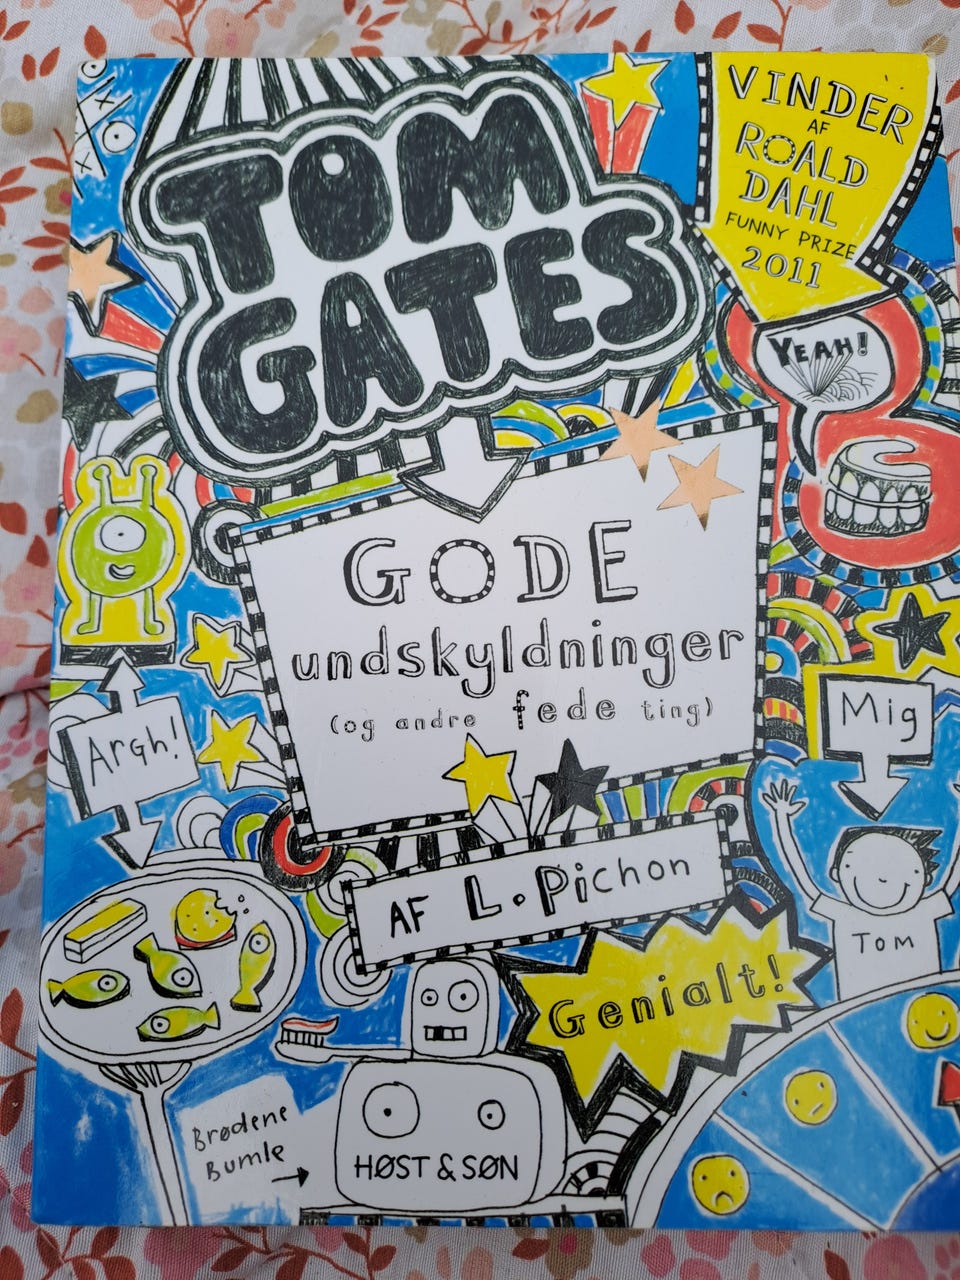 TOM
GATES
VINDER
AF
ROALD
DAHL
FUNNY PRIZE
2011
YEAH!
GODE
undskyldninger
(og andre fede ting)
Argh!
Mig
AF L. Pichon
TOM
Genialt!
Brødene
Bumle
HØST & SØN